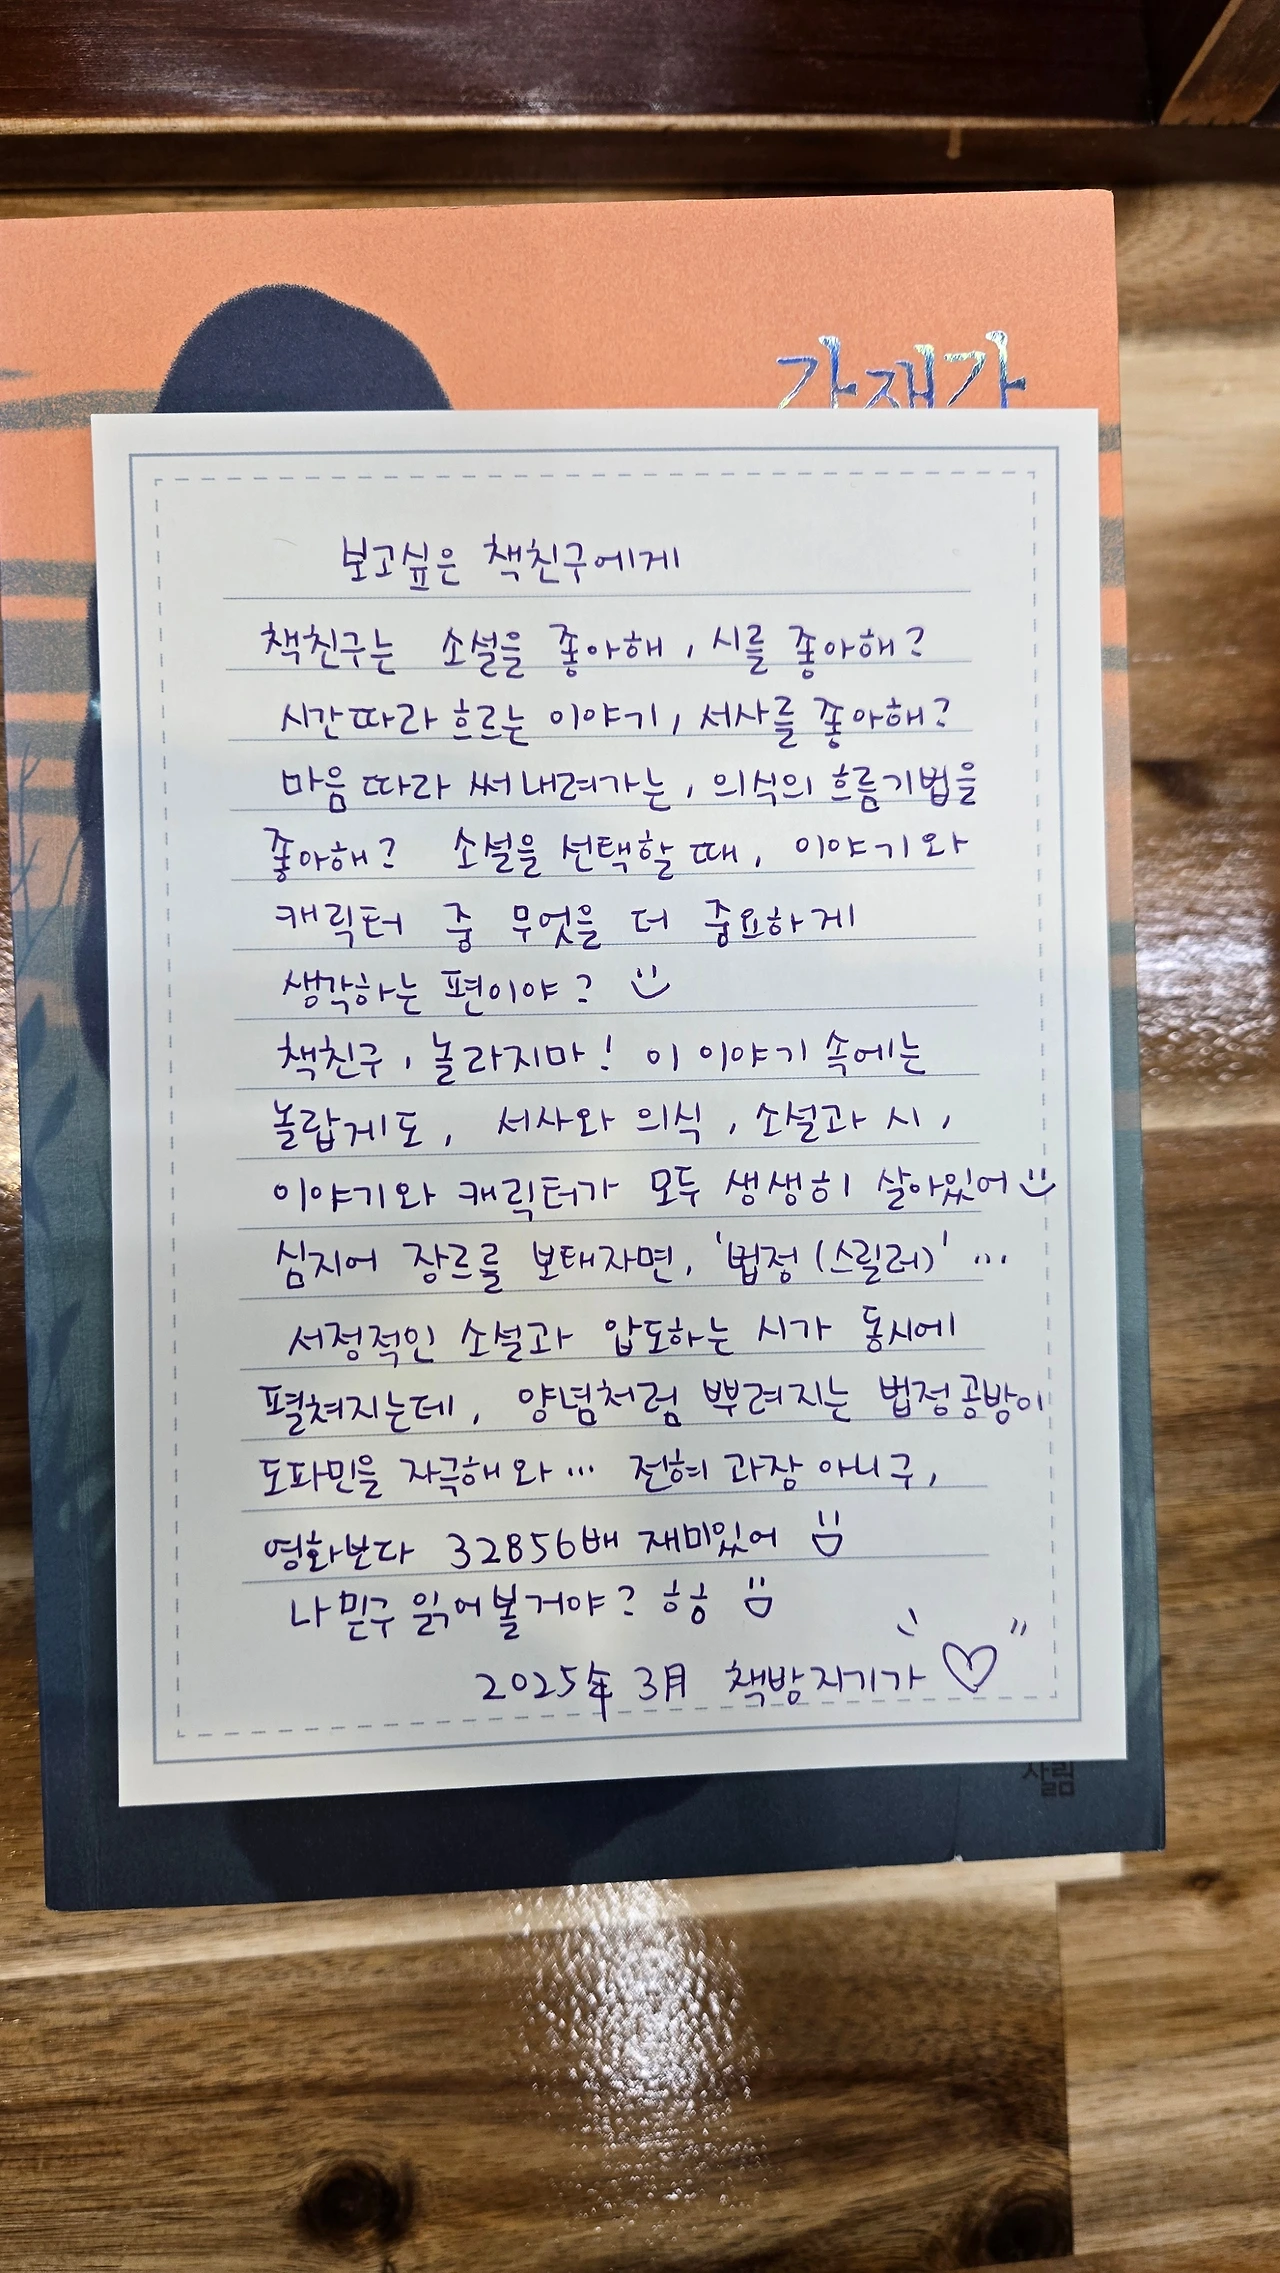 가재가
보고싶은 책친구에게
책친구는 소설을 좋아해, 시를 좋아해?
시간따라 흐르는 이야기, 서사를 좋아해?
마음 따라 써내려가는, 의식의 흐름기법을
좋아해? 소설을 선택할 때, 이야기와
캐릭터 중 무엇을 더 중요하게
생각하는 편이야?
책친구, 놀라지마! 이 이야기 속에는
놀랍게도, 서사와 의식, 소설과 시,
이야기와 캐릭터가 모두 생생히 살아있어
심지어 장르를 보태자면, '법정(스릴러)' ...
서정적인 소설과 압도하는 시가 동시에
펼쳐지는데, 양념처럼 뿌려지는 법정공방이
도파민을 자극해와... 전혀 과장 아니구,
영화보다 32856배 재미있어
나 믿구 읽어볼거야? 히히
2025年 3月 책방지기가
살림